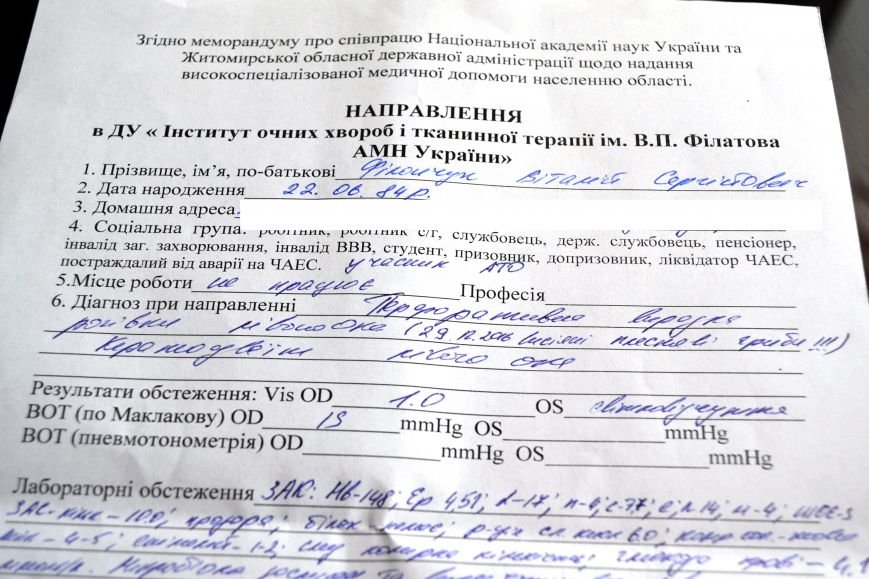 Згідно меморандуму про співпрацю Національної академії наук України та
Житомирської обласної державної адміністрації щодо надання
високоспеціалізованої медичної допомоги населенню області.
НАПРАВЛЕННЯ
в ДУ « Інститут очних хвороб і тканинної терапії ім. В.П. Філатова
АМН України»
1. Прізвище, ім’я, по-батькові Віталій Сергійович
2. Дата народження 22.06.84р.
3. Домашня адреса
4. Соціальна група: робітник, робітник с/г, службовець, держ. службовець, пенсіонер,
інвалід заг. захворювання, інвалід ВВВ, студент, призовник, допризовник, ліквідатор ЧАЕС,
постраждалий від аварії на ЧАЕС. учасник АТО
5.Місце роботи не працює Професія
6. Діагноз при направленні Перфоративна виразка
рогівки лівого ока (29. 2016 висіяні плеснові гриби !!!)
лівого ока
Результати обстеження: Vis OD 1.0 OS світловідчуття
ВОТ (по Маклакову) OD 19 mmHg OS mmHg
ВОТ (пневмотонометрія) OD mmHg OS mmHg
Лабораторні обстеження ЗАК: Нв-148; Ер 4,51; L-17; п-4; с-77; л 14; м-4;
ЗАС- 100; прозора; білок- 
4-5; 1-2;